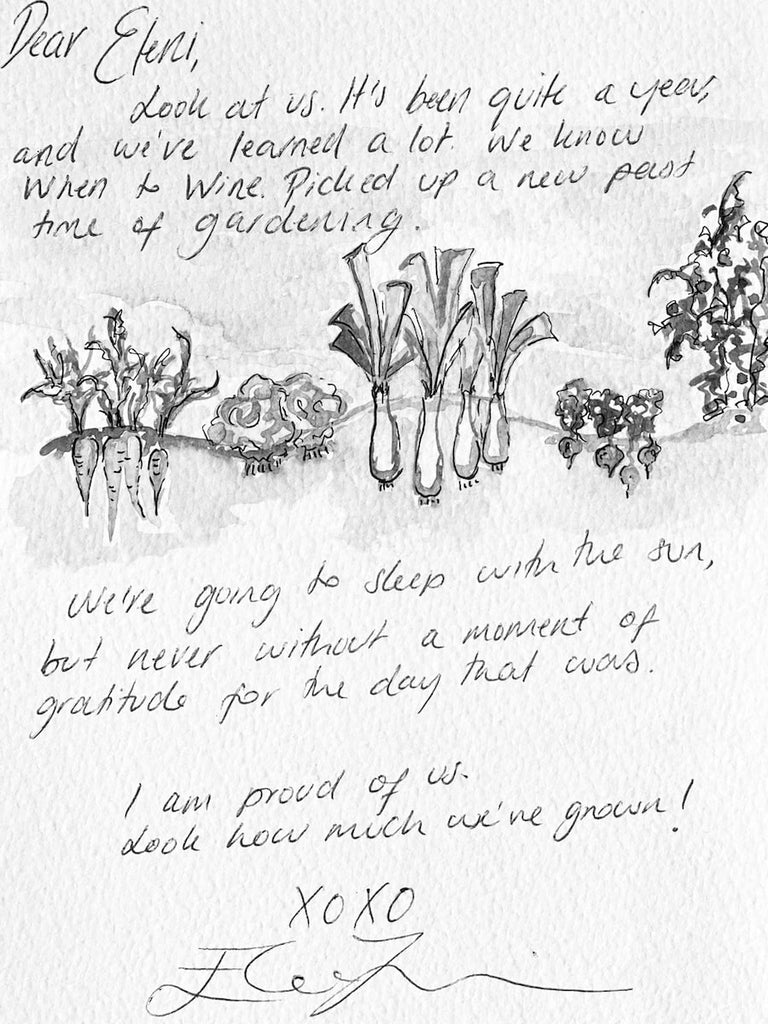 Dear Eleni,
Look at us. It's been quite a year,
and we've learned a lot. We know
when to wine. Picked up a new past
time of gardening.
We're going to sleep with the sun,
but never without a moment of
gratitude for the day that was.
I am proud of us.
Look how much we've grown!
XOXO